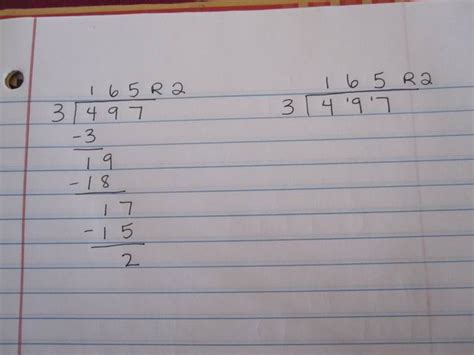 165R2
3)497
-3
19
-18
17
-15
2
165R2
3)4'9'7